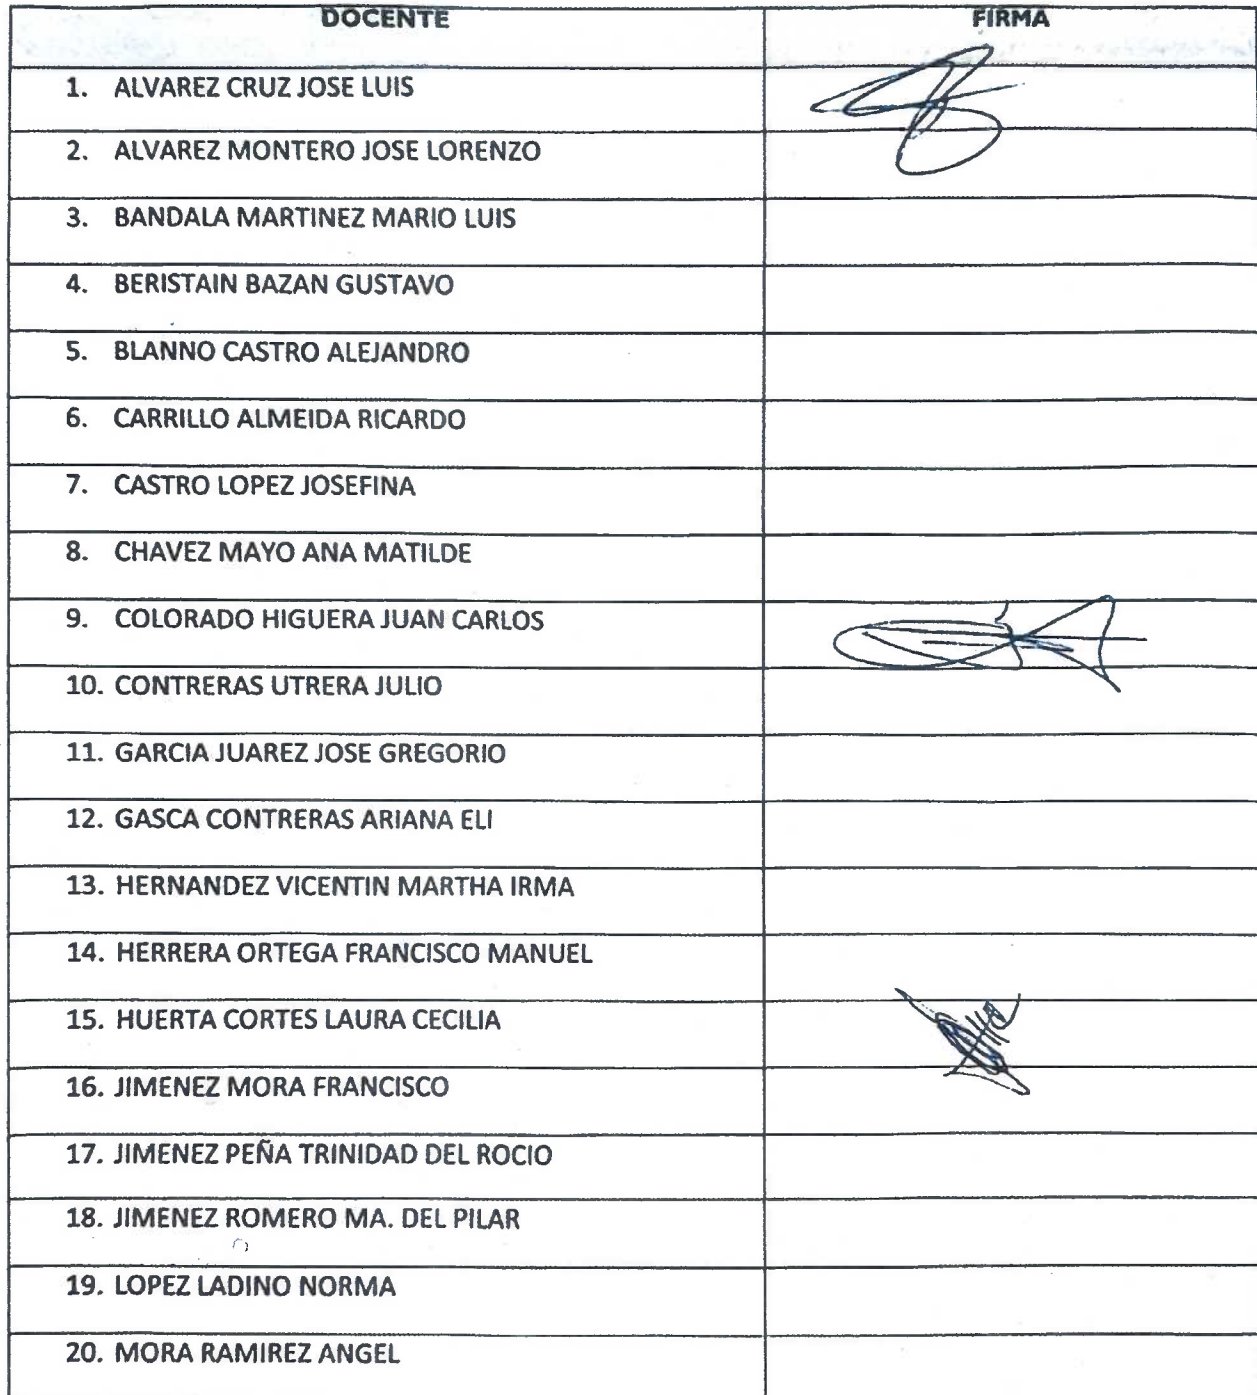 DOCENTE FIRMA
1. ALVAREZ CRUZ JOSE LUIS
2. ALVAREZ MONTERO JOSE LORENZO
3. BANDALA MARTINEZ MARIO LUIS
4. BERISTAIN BAZAN GUSTAVO
5. BLANNO CASTRO ALEJANDRO
6. CARRILLO ALMEIDA RICARDO
7. CASTRO LOPEZ JOSEFINA
8. CHAVEZ MAYO ANA MATILDE
9. COLORADO HIGUERA JUAN CARLOS
10. CONTRERAS UTRERA JULIO
11. GARCIA JUAREZ JOSE GREGORIO
12. GASCA CONTRERAS ARIANA ELI
13. HERNANDEZ VICENTIN MARTHA IRMA
14. HERRERA ORTEGA FRANCISCO MANUEL
15. HUERTA CORTES LAURA CECILIA
16. JIMENEZ MORA FRANCISCO
17. JIMENEZ PEÑA TRINIDAD DEL ROCIO
18. JIMENEZ ROMERO MA. DEL PILAR
19. LOPEZ LADINO NORMA
20. MORA RAMIREZ ANGEL